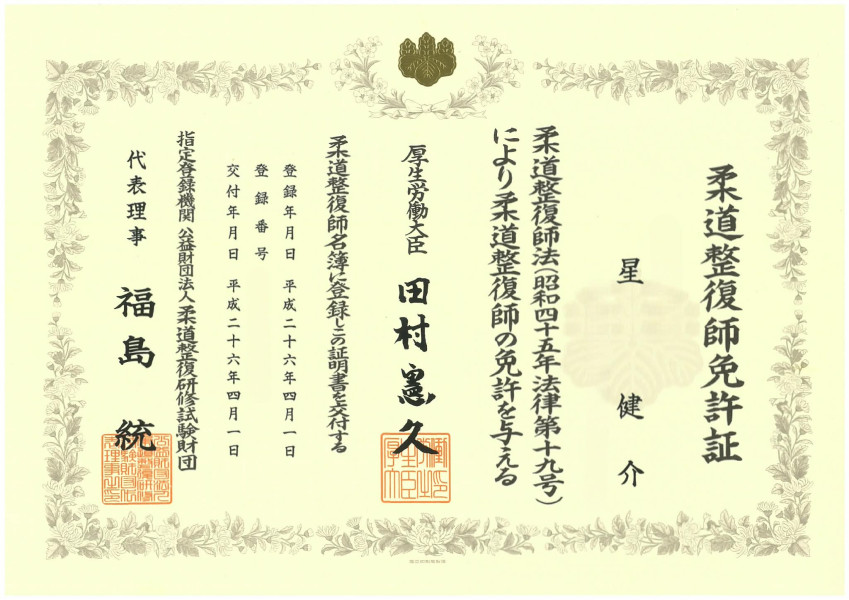 柔道整復師免許証
星 健介
柔道整復師法(昭和四十五年法律第十九号)
により柔道整復師の免許を与える
厚生労働大臣 田村憲久
柔道整復師名簿に登録しこの証明書を交付する
登録年月日 平成二十六年四月一日
登録番号
交付年月日 平成二十六年四月一日
指定登録機関 公益財団法人柔道整復研修試験財団
代表理事 福島 統